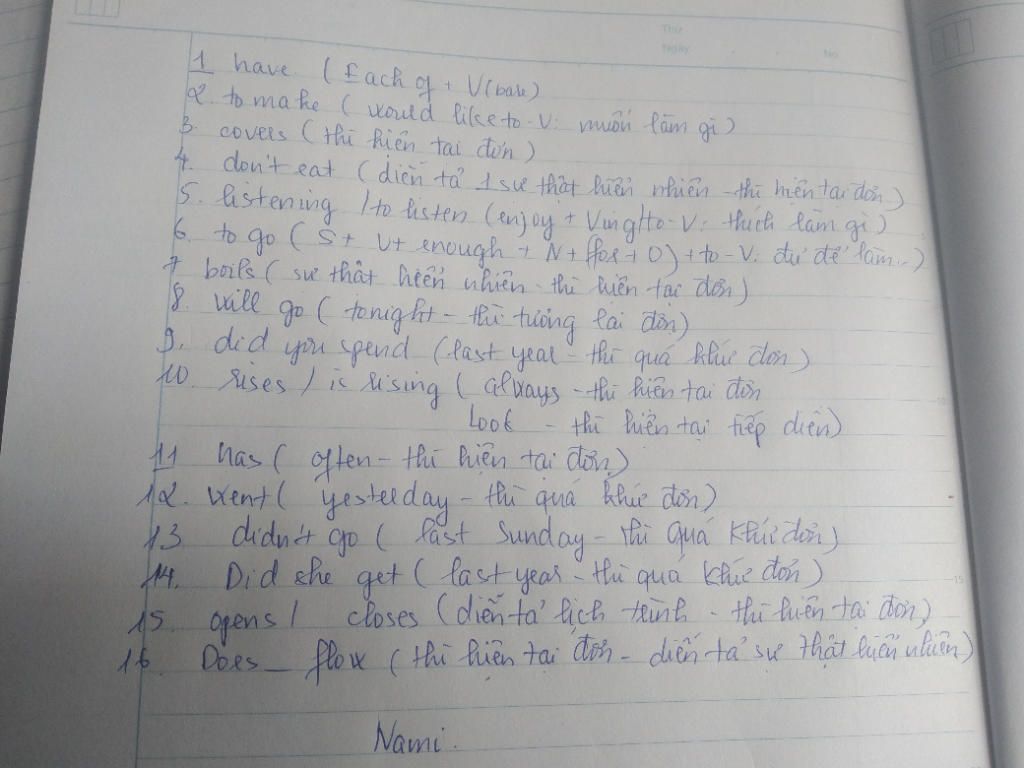 Thứ
Ngày
No
1 have (Each of + V(bare)
2. to make (would like to-V: muốn làm gì)
3. covers (thì hiện tại đơn)
4. don't eat (diễn tả 1 sự thật hiển nhiên - thì hiện tại đơn)
5. listening / to listen (enjoy + Ving/to-V: thích làm gì)
6. to go (S + V + enough + N + (for + O) + to-V: đủ để làm..)
7 boils (sự thật hiển nhiên - thì hiện tại đơn)
8. will go (tonight - thì tương lai đơn)
9. did you spend (last year - thì quá khứ đơn)
10. rises / is rising (always - thì hiện tại đơn
Look - thì hiện tại tiếp diễn)
11 has (often - thì hiện tại đơn)
12. went (yesterday - thì quá khứ đơn)
13 didn't go (last Sunday - thì quá khứ đơn)
14. Did she get (last year - thì quá khứ đơn)
15. opens / closes (diễn tả lịch trình - thì hiện tại đơn)
16 Does _ flow (thì hiện tại đơn - diễn tả sự thật hiển nhiên)
Nami.